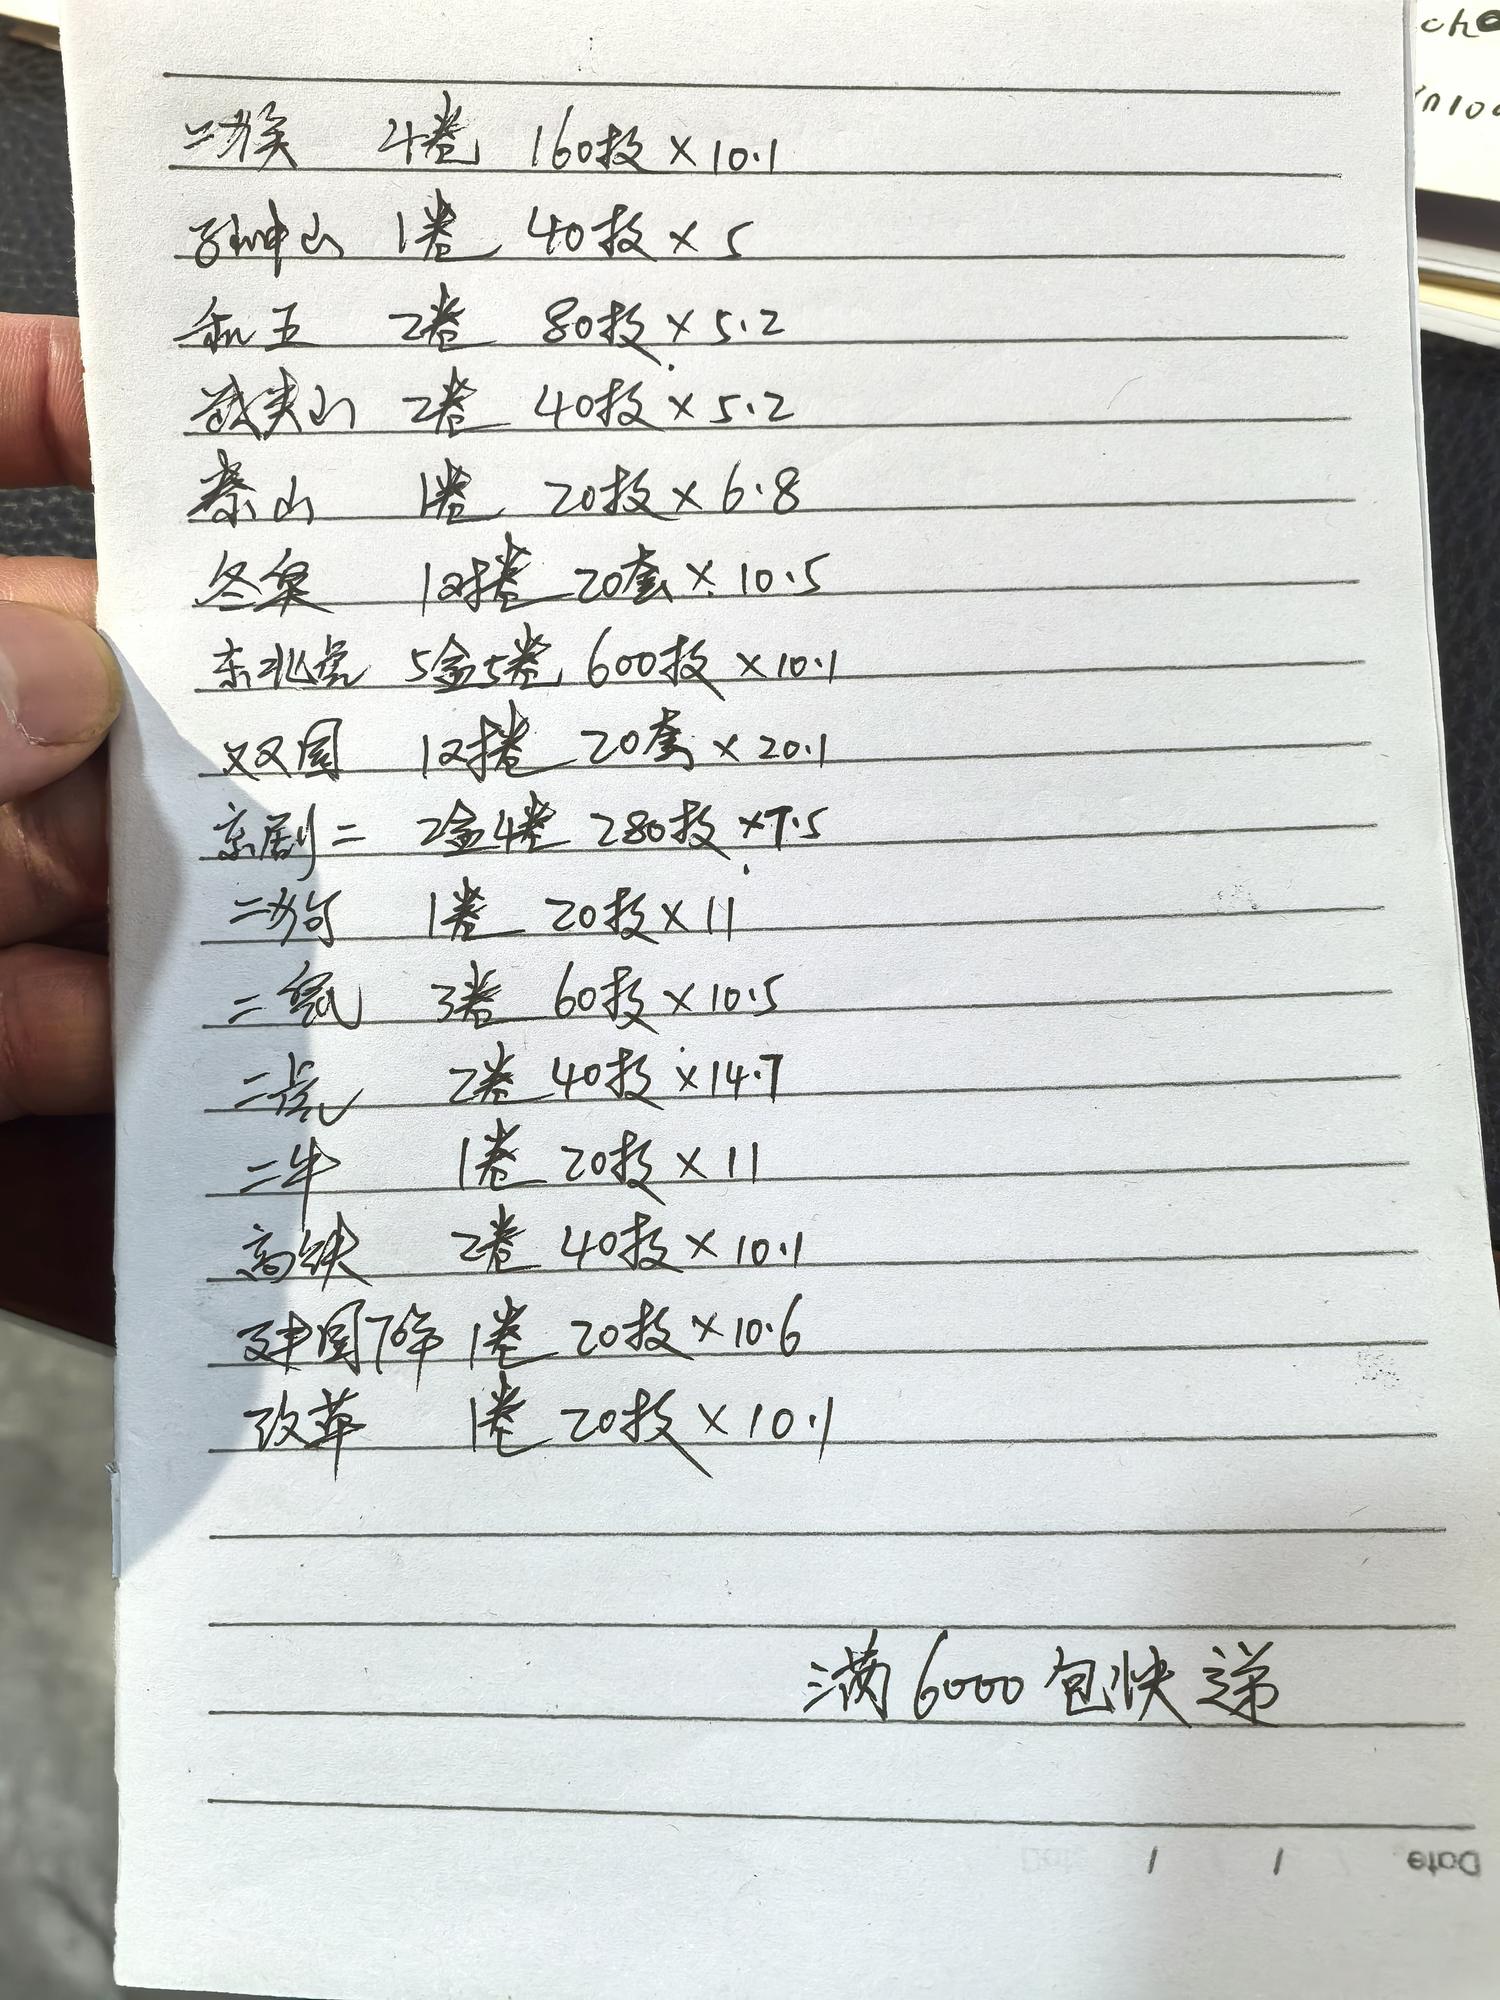 二猴 4卷 160枚×10.1
孙中山 1卷 40枚×5
和五 2卷 80枚×5.2
武夷山 2卷 40枚×5.2
泰山 1卷 20枚×6.8
冬奥 1对卷 20套×10.5
东北虎 5盒5卷 600枚×10.1
双国 1对卷 20套×20.1
京剧二 2盒4卷 280枚×7.5
二狗 1卷 20枚×11
二鼠 3卷 60枚×10.5
二虎 2卷 40枚×14.7
二牛 1卷 20枚×11
高铁 2卷 40枚×10.1
建国70年 1卷 20枚×10.6
改革 1卷 20枚×10.1
满6000包快递
Date
cho